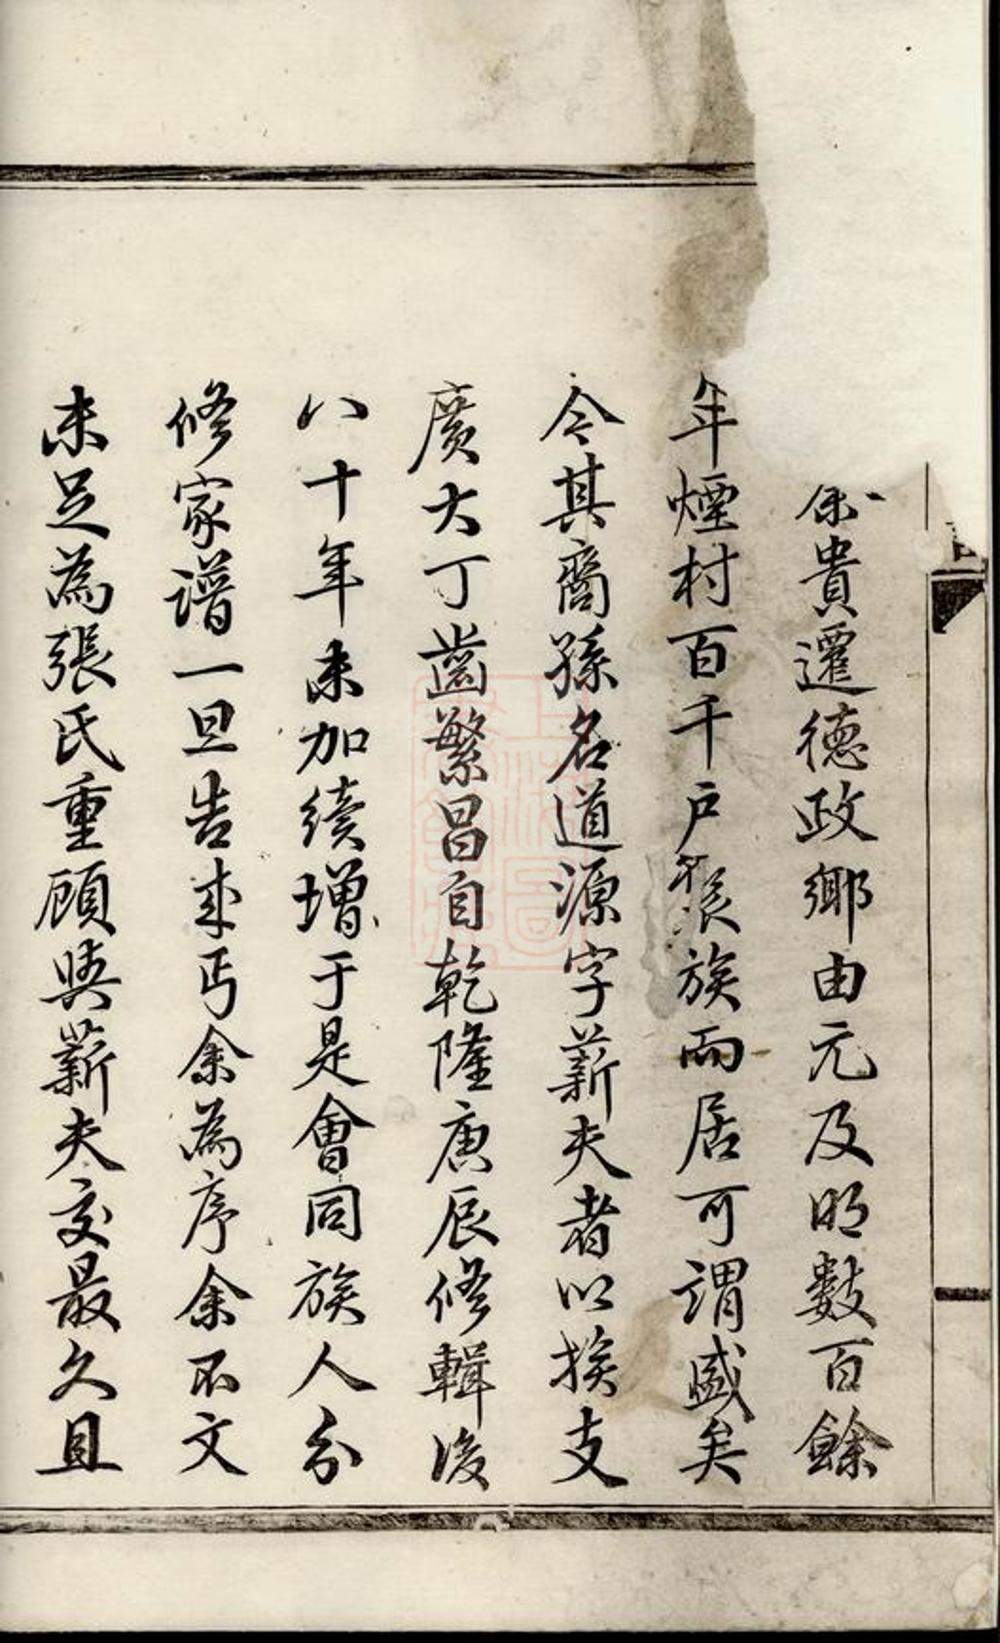 貴遷德政鄉由元及明數百餘
年煙村百千戶張族而居可謂盛矣
今其裔孫名道源字薪夫者以族支
廣大丁齒繁昌自乾隆庚辰修輯後
八十年未加續增于是會同族人分
修家譜一旦告成丐余為序余不文
未足為張氏重顧與薪夫交最久且